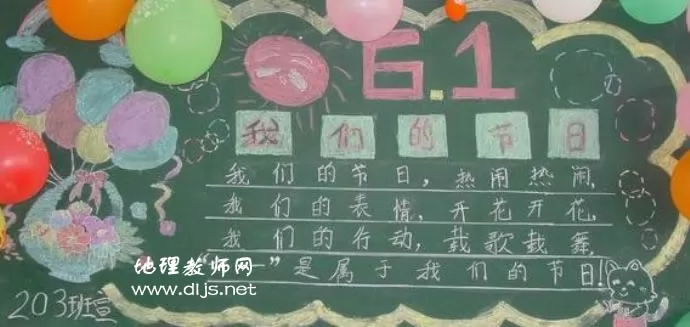 6.1
我们的节日
我们的节日，热闹热闹
我们的表情，开花开花
我们的行动，载歌载舞
一”是属于我们的节日!
地理教师网
www.dljs.net
203班宣